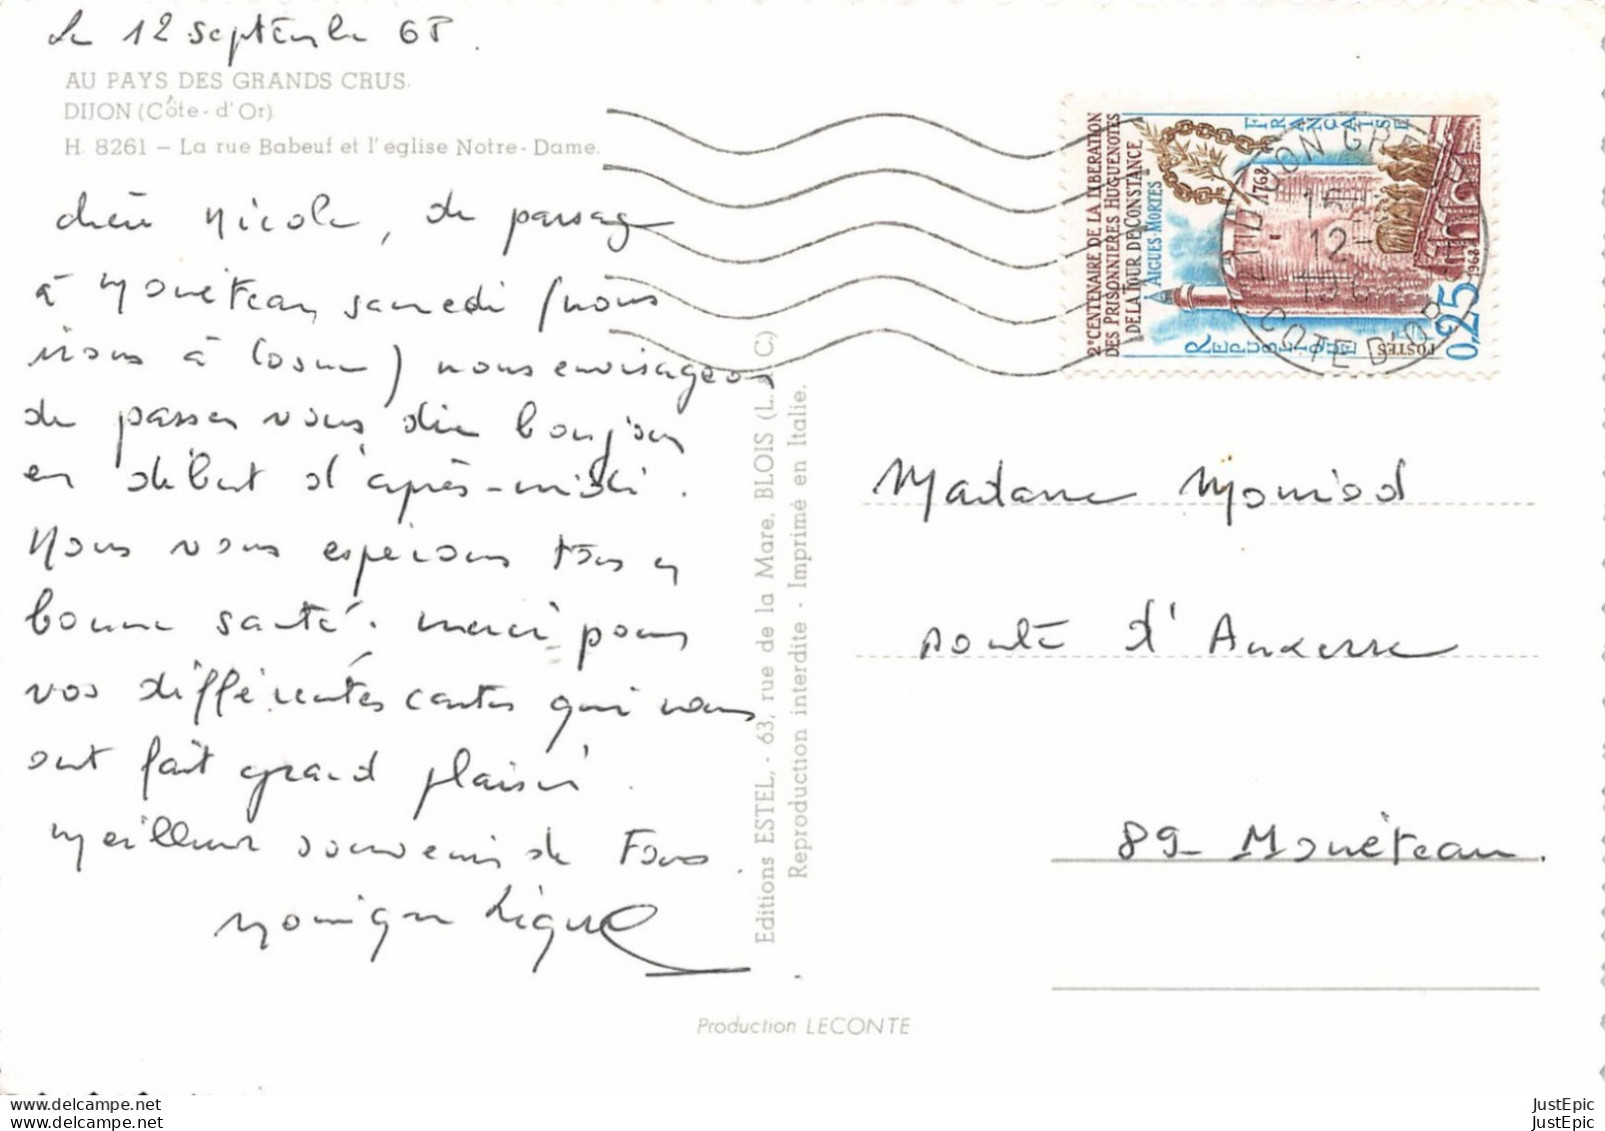 Le 12 septembre 68.
AU PAYS DES GRANDS CRUS.
DIJON (Côte-d'Or).
H. 8261 – La rue Babeuf et l'église Notre-Dame.
chère Nicole, de passage
à Monéteau, samedi (nous
irons à Cosne) nous envisageons
de passer vous dire bonjour
en début d'après-midi.
Nous vous espérons tous en
bonne santé. merci pour
vos différentes cartes qui nous
ont fait grand plaisir.
Meilleurs souvenirs de Tous.
Monique
Editions ESTEL, - 63, rue de la Mare, BLOIS (L. & C)
Reproduction interdite - Imprimé en Italie.
Production LECONTE
2e CENTENAIRE DE LA LIBERATION
DES PRISONNIERES HUGUENOTES
DE LA TOUR DE CONSTANCE
A AIGUES-MORTES
1768
REPUBLIQUE
FRANCAISE
1968
POSTES
0,25
21 DIJON GRE
12-
196
COTE D'OR
Madame
route d'Auxerre
89- Monéteau.
JustEpic
JustEpic
JustEpic
JustEpic